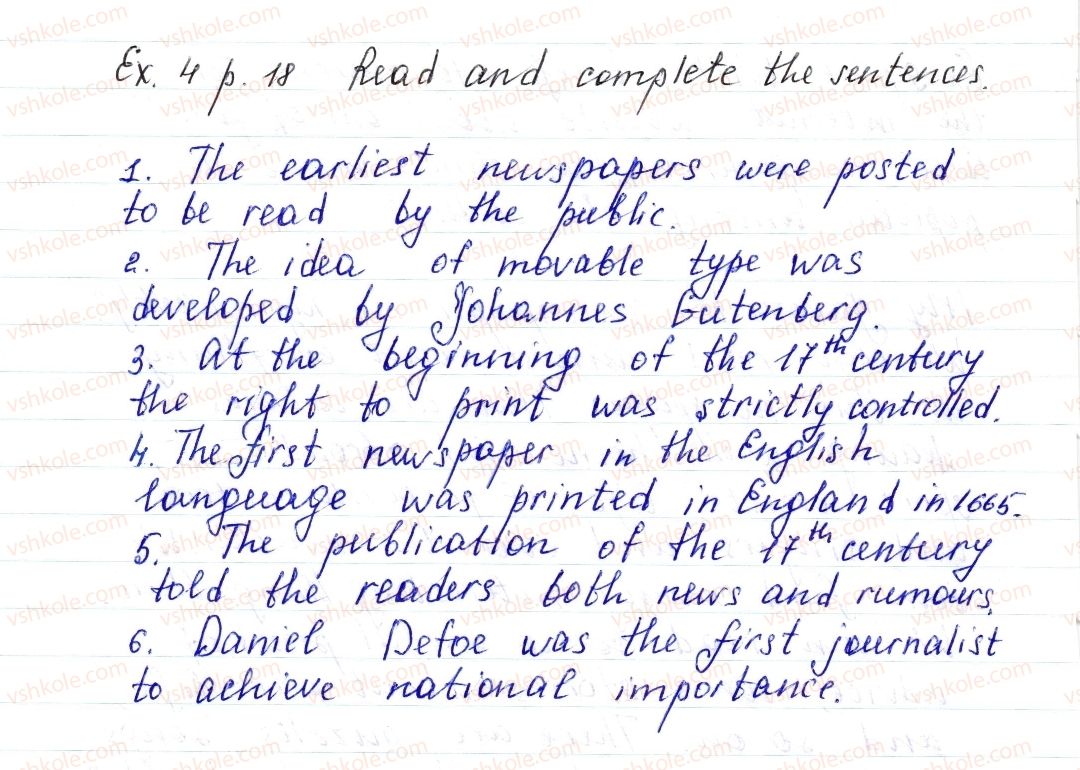 Ex. 4 p. 18 Read and complete the sentences.
1. The earliest newspapers were posted
to be read by the public.
2. The idea of movable type was
developed by Johannes Gutenberg.
3. At the beginning of the 17th century
the right to print was strictly controlled.
4. The first newspaper in the English
language was printed in England in 1665.
5. The publication of the 17th century
told the readers both news and rumours.
6. Daniel Defoe was the first journalist
to achieve national importance.
vshkole.com